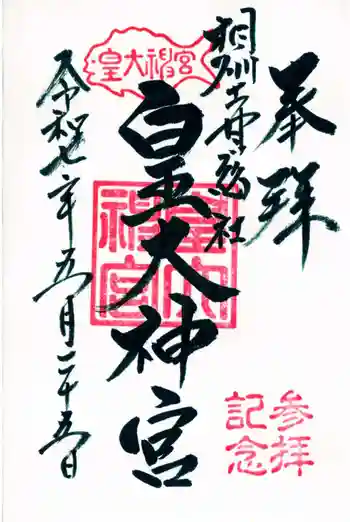 奉拝
相州土甘惣社
皇大神宮
皇大神宮
皇大神宮
令和七年五月二十五日
参拝
記念